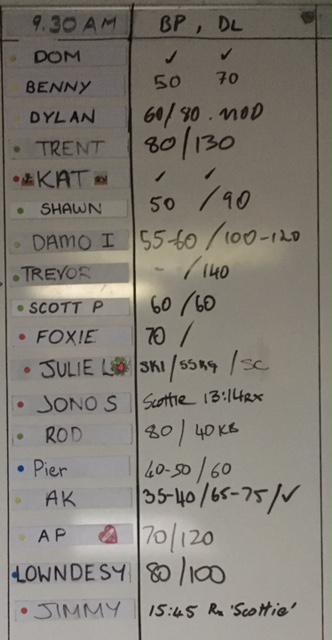 9.30AM BP, DL
DOM ✓ ✓
BENNY 50 70
DYLAN 60/80.MOD
TRENT 80/130
KAT ✓ ✓
SHAWN 50 /90
DAMO I 55-60/100-120
TREVOR - /140
SCOTT P 60/60
FOXIE 70 /
JULIE L SKI/55KG/SC
JONO S Scottie 13:14Rx
ROD 80/40KB
Pier 40-50/60
AK 35-40/65-75/✓
AP 70/120
LOWNDESY 80/100
JIMMY 15:45 Rx 'Scottie'